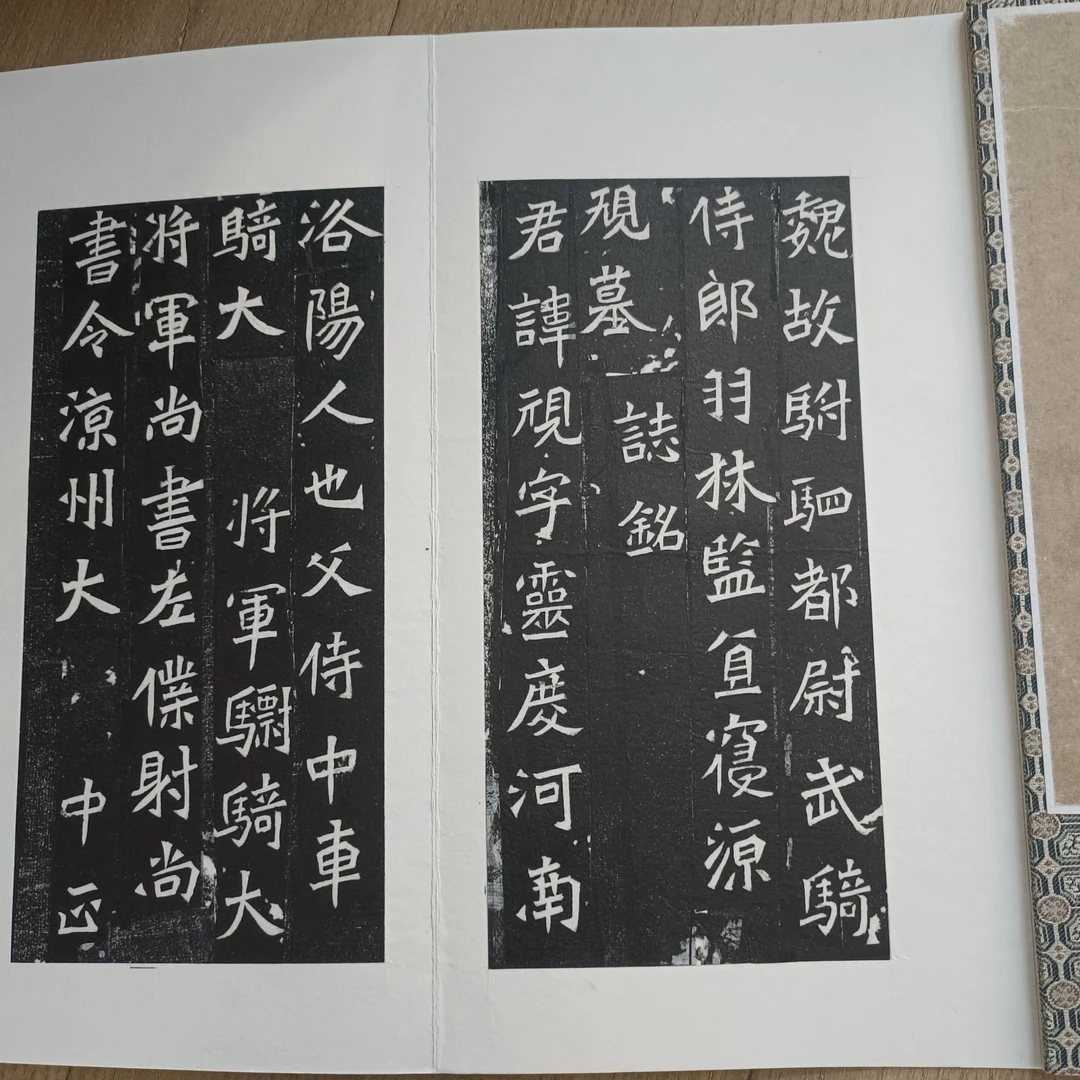 魏故駙駟都尉武騎
侍郎羽林監直寢源
規墓誌銘
君諱規字靈度河南
洛陽人也父侍中車
騎大將軍驃騎大
將軍尚書左僕射尚
書令涼州大中正